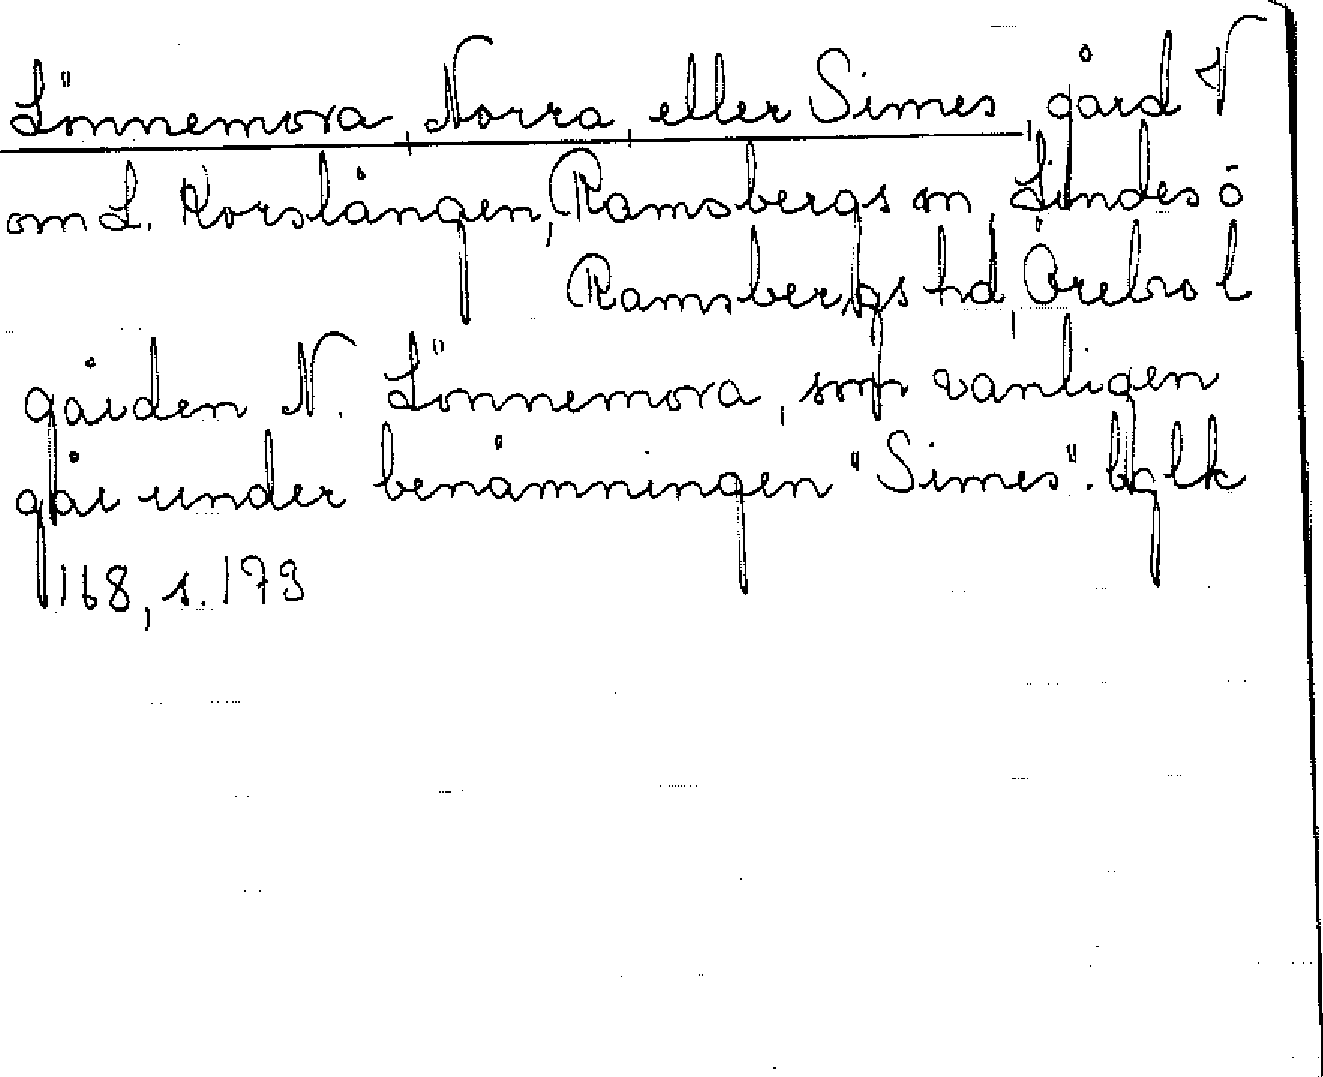 Lönnemora, Norra, eller Simes, gård V
om L. Korslången, Ramsbergs sn, Lindes o
Ramsbergs hd, Örebro l
gården N. Lönnemora, som vanligen
går under benämningen "Simes". Bglk
168, s. 173